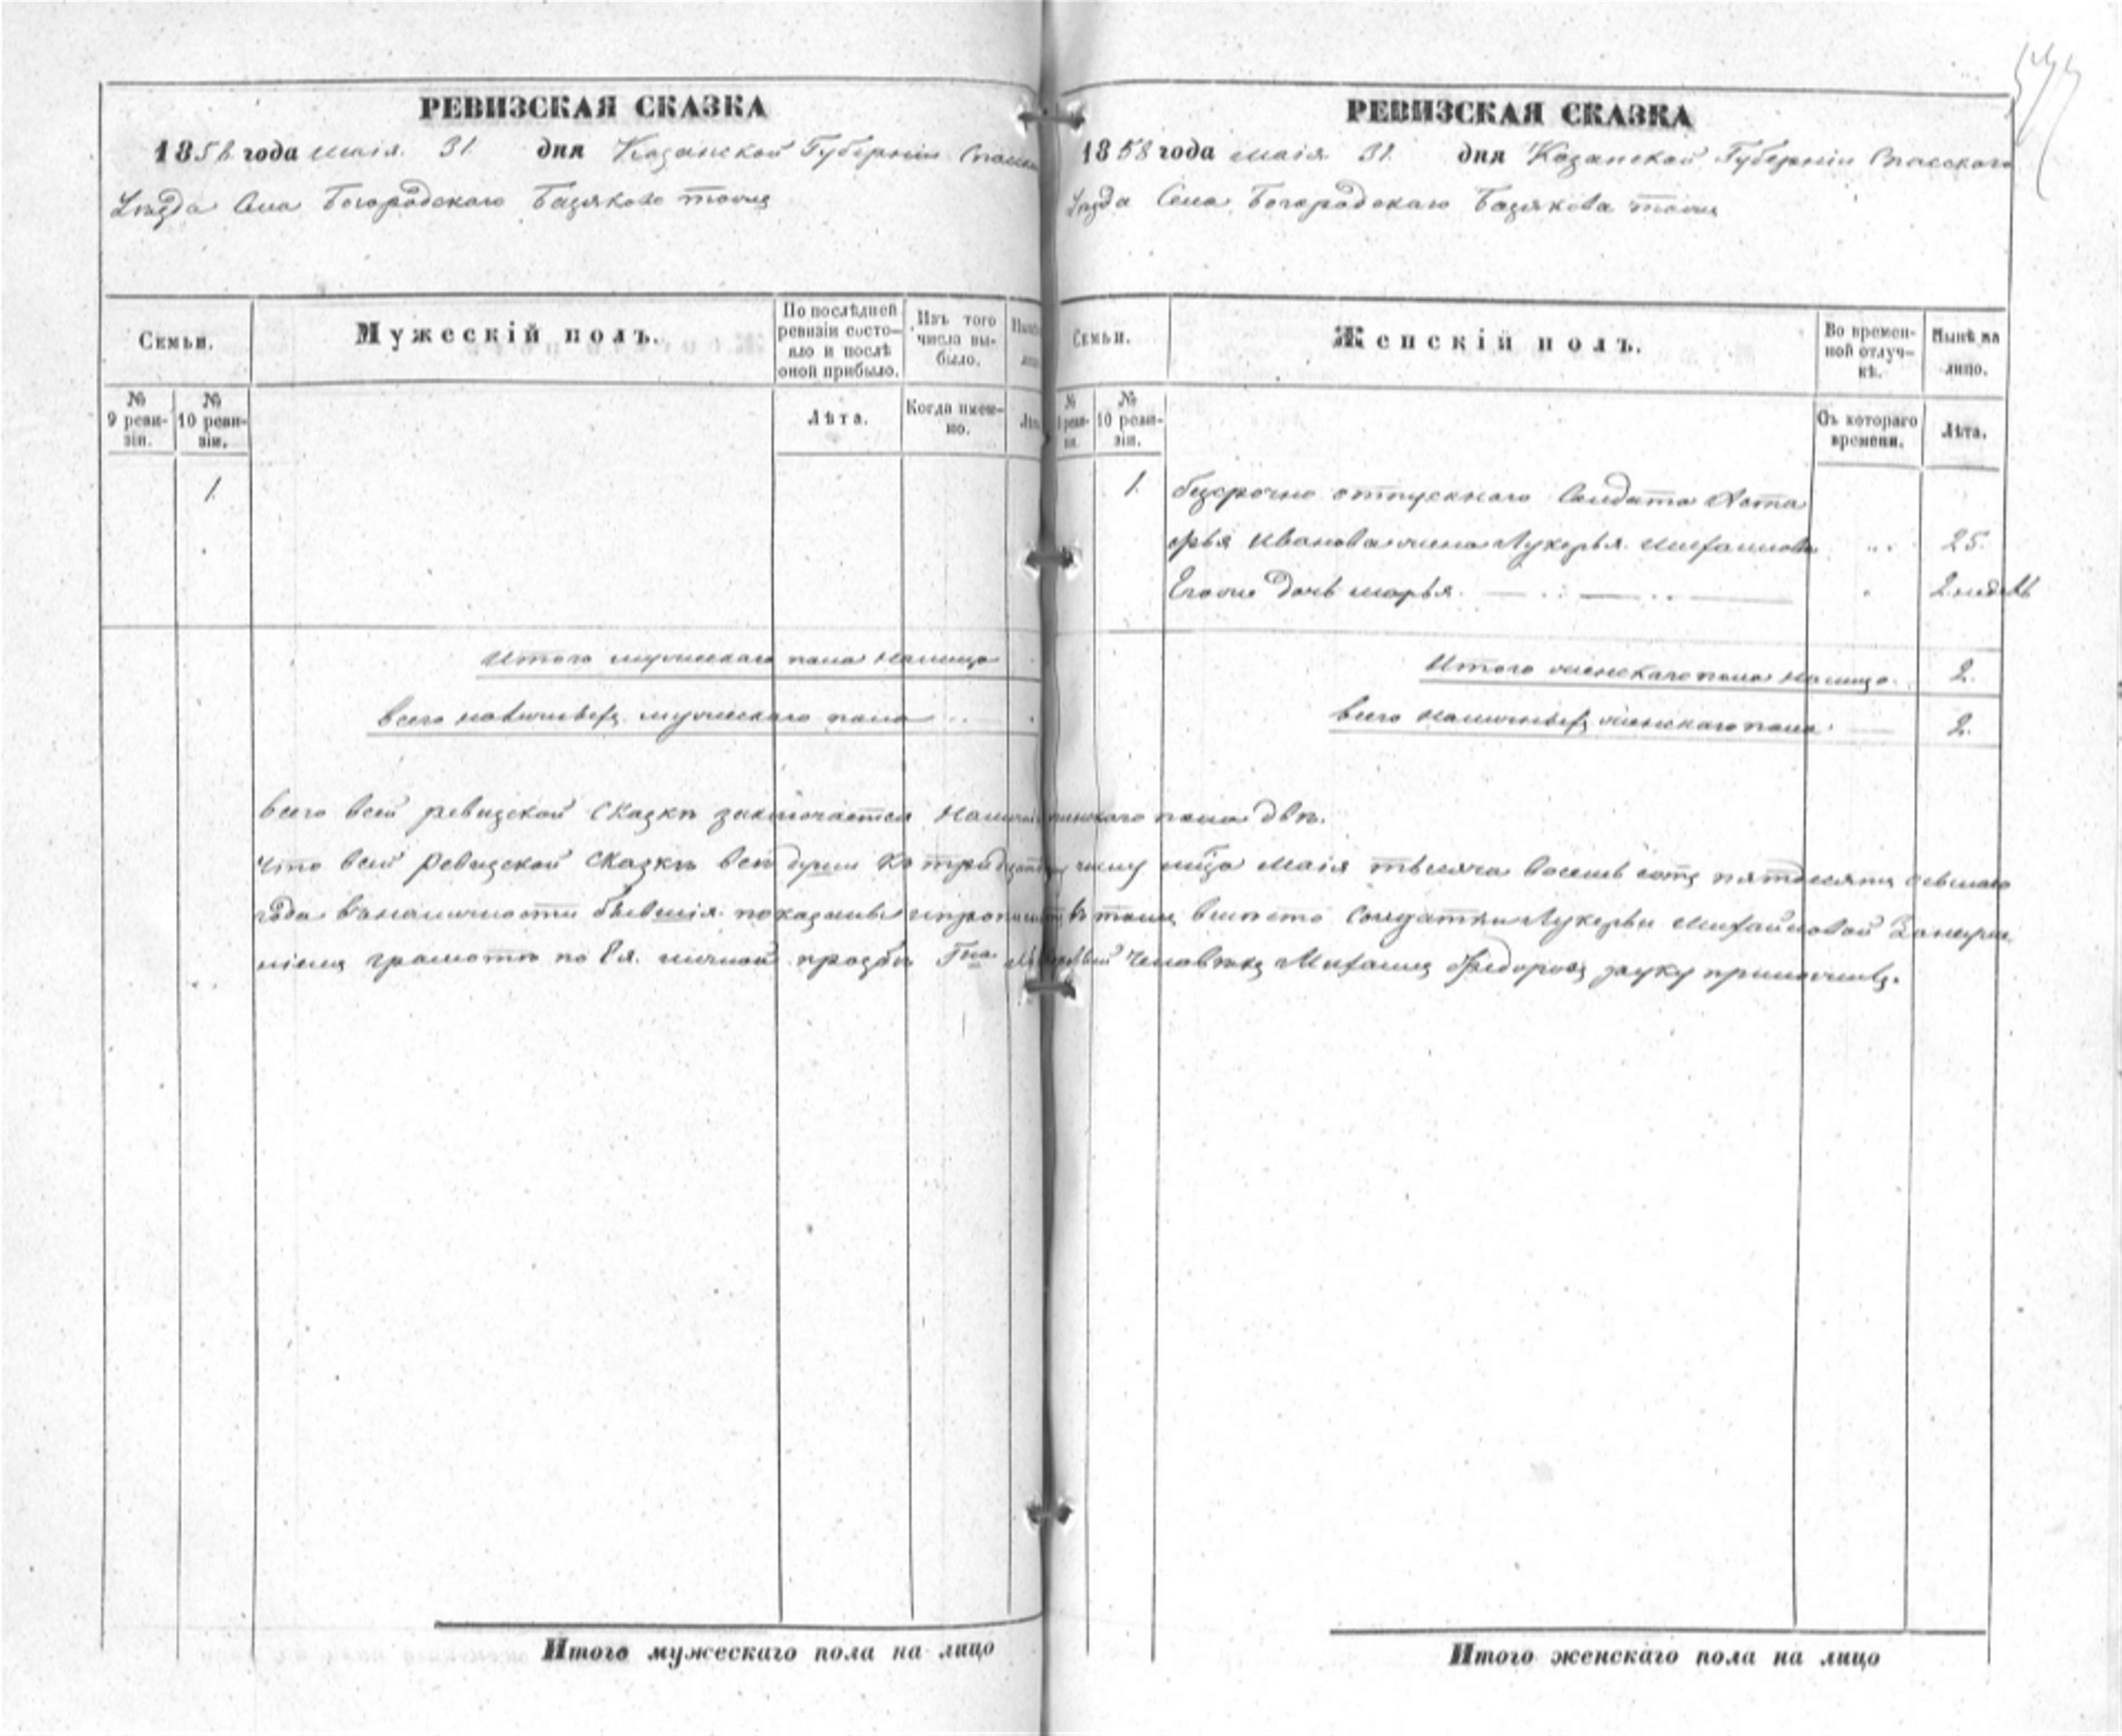 577
РЕВИЗСКАЯ СКАЗКА
1858 года маія 31 дня Казанской Губерніи Спаскаго
Уѣзда Села Богородскаго Базяково тожъ
Семьи.
Мужескій полъ.
По послѣдней ревизіи состо-
яло и послѣ
оной прибыло.
Изъ того
числа вы-
было.
№
9 реви-
зіи.
№
10 реви-
зіи.
Лѣта.
Когда имен-
но.
1.
Итого мужескаго пола налицо
Всего наличныхъ мужескаго пола
РЕВИЗСКАЯ СКАЗКА
1858 года маія 31. дня Казанской Губерніи Спасскаго
Уѣзда Села Богородскаго Базякова тожъ
Семьи.
Женскій полъ.
Во времен-
ной отлуч-
кѣ.
Нынѣ на
лицо.
№
№
10 реви-
зіи.
Съ котораго
времени.
Лѣта.
1. безсрочно отпускнаго Солдата Аста
фья Иванова жена Лукерья Михайлова 25.
Егоже дочь марья. 2 недѣль
Итого женскаго пола налицо. 2.
Всего наличныхъ женскаго пола 2.
Всего всей ревизской Сказкѣ заключается женскаго пола двѣ.
Что всей Ревизской Сказкѣ всѣ души къ числу маія тысяча восемь сотъ пятьдесятъ
года в наличности бывшія показаны вмѣсто Солдатки Лукерьи Михайловой
грамотѣ по Ея личной прозбѣ Человѣкъ Михаилъ Федоровъ руку приложилъ.
Итого мужескаго пола на лицо
Итого женскаго пола на лицо